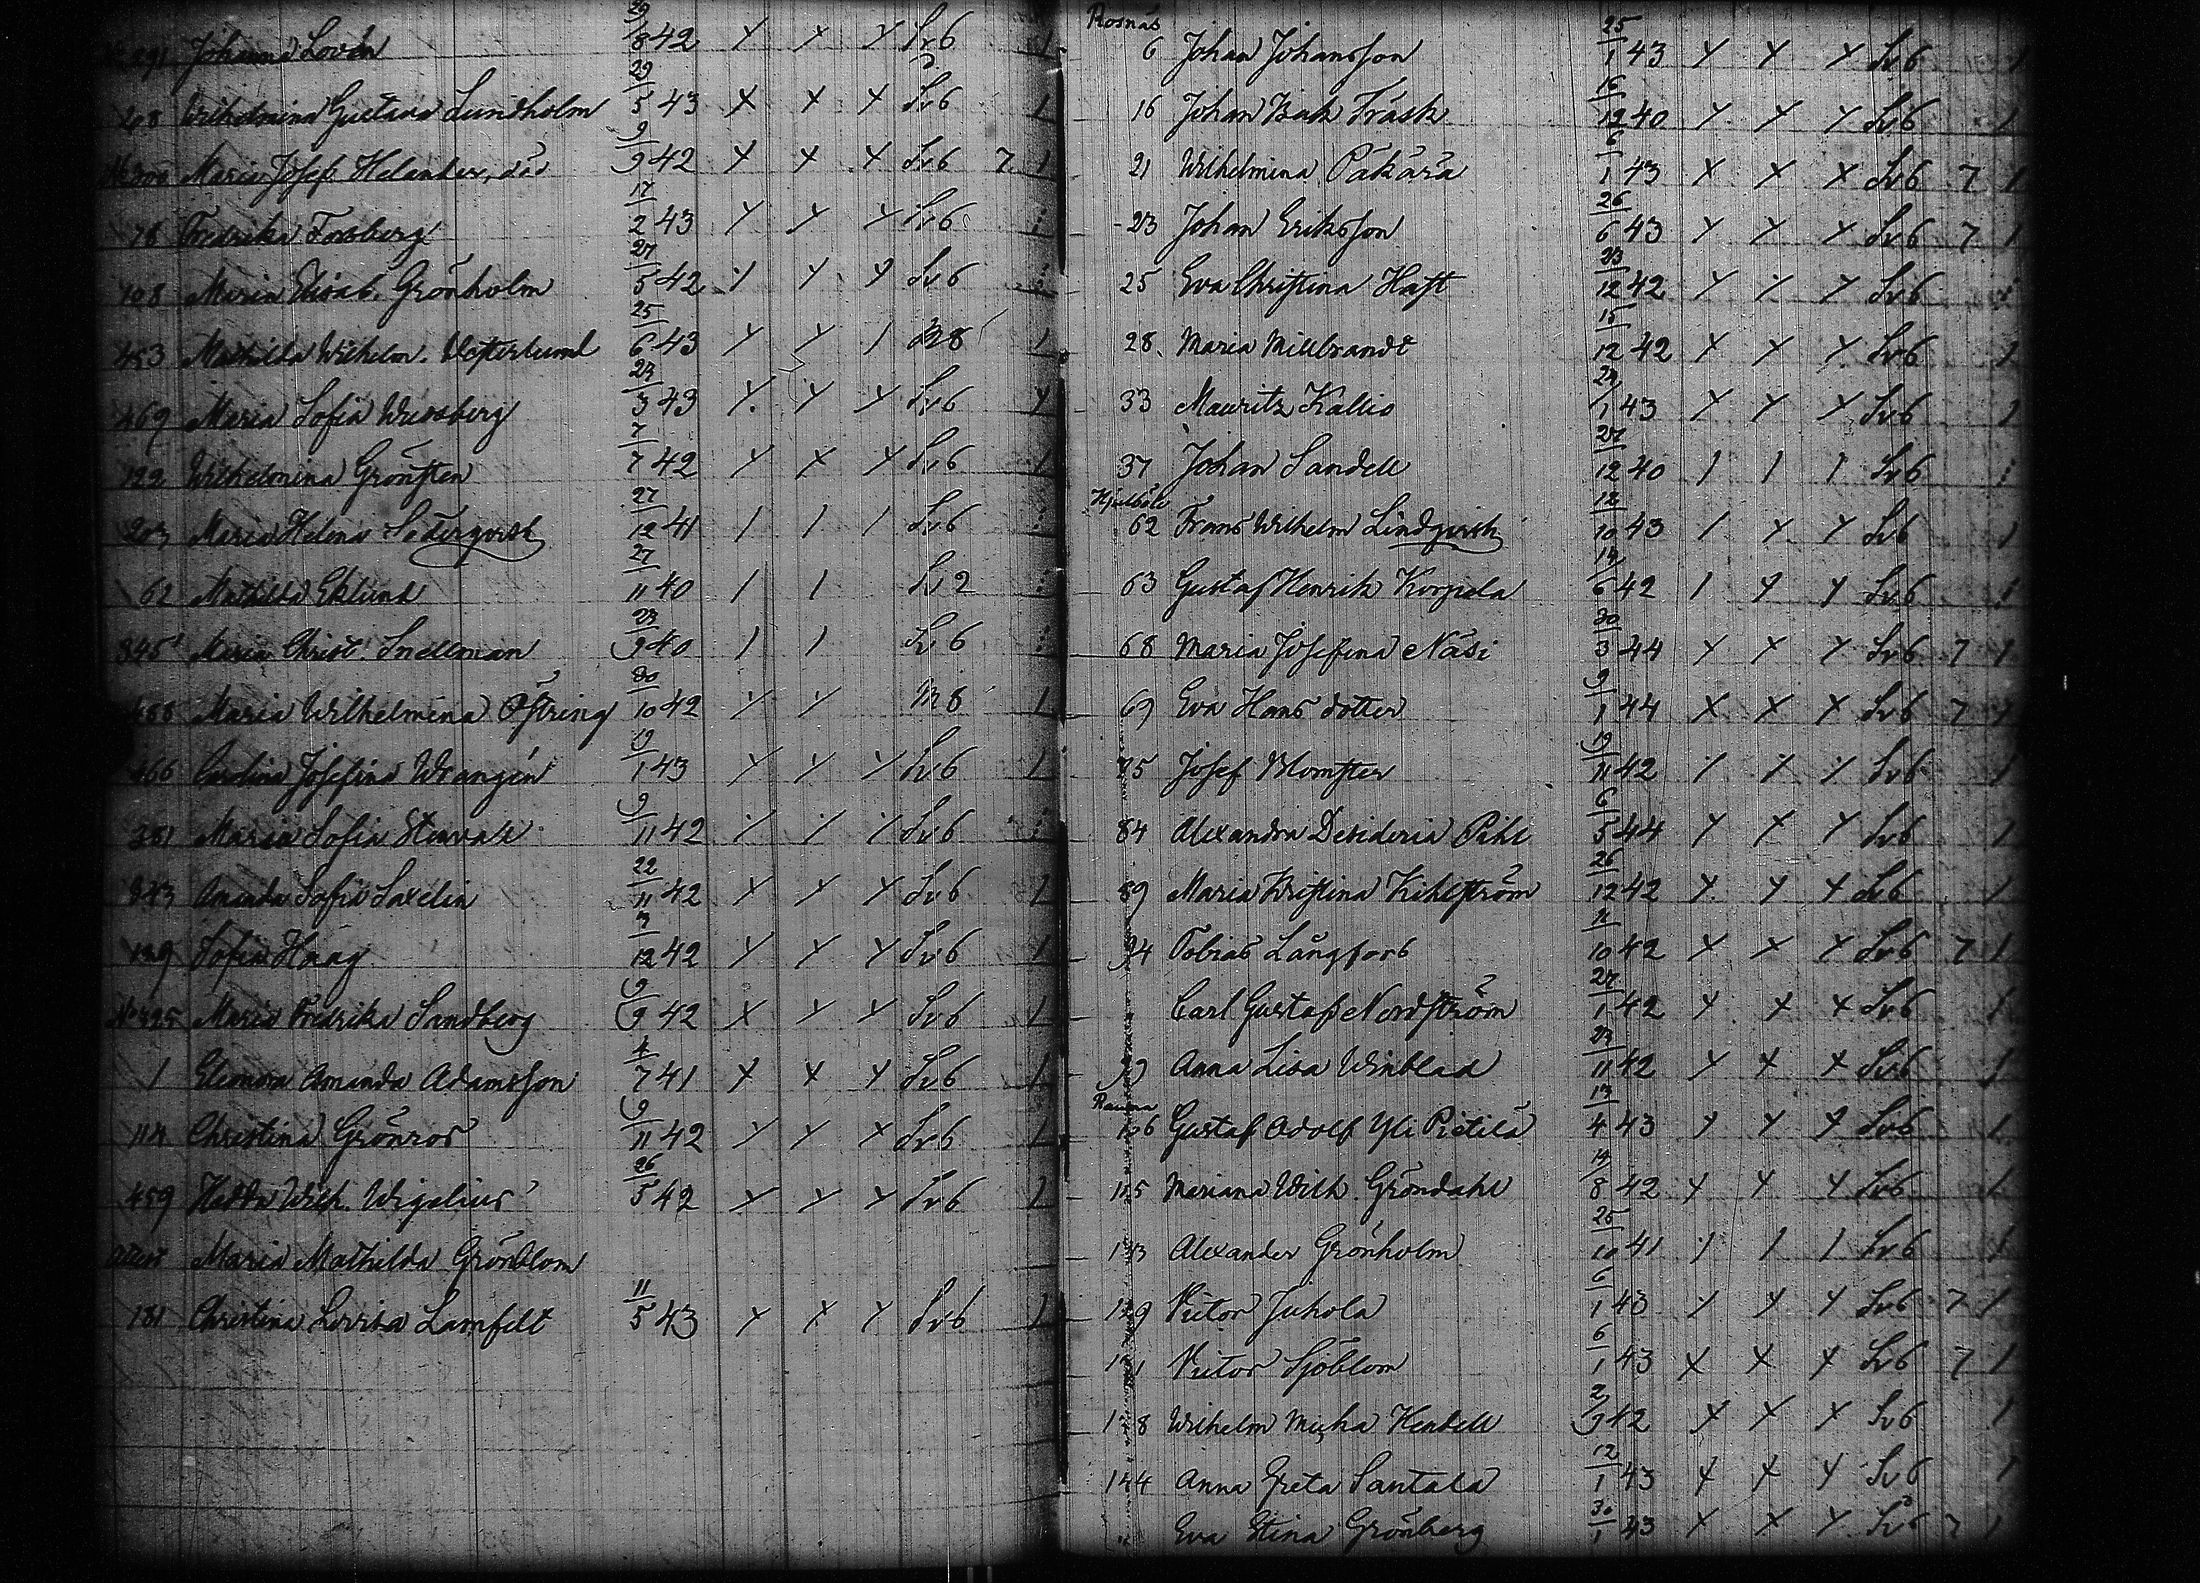 291 Johanna Lovén 29/8 42 x x x Sv6 1
208 Wilhelmina Gustava Lundholm 29/5 43 x x x Sv6 1
No 300 Maria Josef. Helander, död 9/9 42 x x x Sv6 7 1
76 Fredrika Forsberg 17/2 43 x x x Sv6
108 Maria Elisab. Grönholm 27/5 42 x x x Sv6
453 Mathilda Wilhelm. Westerlund 25/6 43 x x 1 M8 1
469 Maria Sofia Wessberg 3 43 x x x Sv6 x
122 Wilhelmina Grönsten 7/7 42 x x x Sv6 1
203 Maria Helena Söderqvist 27/12 41 1 1 1 Sv6
62 Mathilda Eklund 27/11 40 1 1 Sv2
345 Maria Christ. Snellman 9 40 1 1 Sv6
488 Maria Wilhelmina Östring 30/10 42 x x M8 1
466 Carolina Josefina Wrangén 19/1 43 x x x Sv6 1
381 Maria Sofia 9/11 42 x x x Sv6
343 Amanda Sofia Saxelin 22/11 42 x x x Sv6 1
129 Sofia Haag 7/12 42 x x x Sv6 1
No 325 Maria Fredrika Sandberg 9/9 42 x x x Sv6 1
1 Eleonora Amanda Adamsson 4/7 41 x x x Sv6 1
114 Christina Grönros 9/11 42 x x x Sv6 1
459 Hedda Wilh. Wigelius 26/5 42 x x x Sv6 1
Maria Mathilda Grönblom
181 Christina Lovisa Lamfelt 11/5 43 x x x Sv6 1
Rosnäs
6 Johan Johansson 25/1 43 x x x Sv6 1
16 Johan Isak Träsk 16/12 40 x x x Sv6 1
21 Wilhelmina Päkärä 6/1 43 x x x Sv6 7 1
23 Johan Eriksson 26/6 43 x x x Sv6 7 1
25 Eva Christina Haft 23/12 42 x x x Sv6
28. Maria Millbrandt 15/12 42 x x x Sv6 1
33 Mauritz Kallio 24/1 43 x x x Sv6 1
37 Johan Sandell 27/12 40 1 1 1 Sv6
62 Frans Wilhelm Lindqvist 12/10 43 1 x x Sv6 1
63 Gustaf Henrik Korpela 14/6 42 1 x x Sv6 1
68 Maria Josefina Näsi 30/3 44 x x x Sv6 7 1
69 Eva Hansdotter 9/1 44 x x x Sv6 7 1
75 Josef Blomster 19/11 42 x x x Sv6 1
84 Alexandra Desideria Pihl 6/5 44 x x x Sv6 1
89 Maria Kristina Kihlström 26/12 42 x x x Sv6 1
94 Tobias Långfors 11/10 42 x x x Sv6 7 1
Carl Gustaf Nordström 27/1 42 x x x Sv6 1
99 Anna Lisa Winblad 11 42 x x x Sv6 1
Rauma
106 Gustaf Adolf Yli Pietilä 13/4 43 x x x Sv6 1
115 Mariana Wilh. Gröndahl 14/8 42 x x x Sv6 1
Alexander Grönholm 25/10 41 1 1 1 Sv6 1
129 Victor Juhola 6/1 43 x x x Sv6 7 1
Victor Sjöblom 6/1 43 x x x Sv6 7 1
Wilhelm Micha Hendell 2/9 42 x x x Sv6 1
144 Anna Greta Santala 12/1 43 x x x Sv6 1
" Eva Stina Grönberg 30/1 43 x x x Sv6 7 1